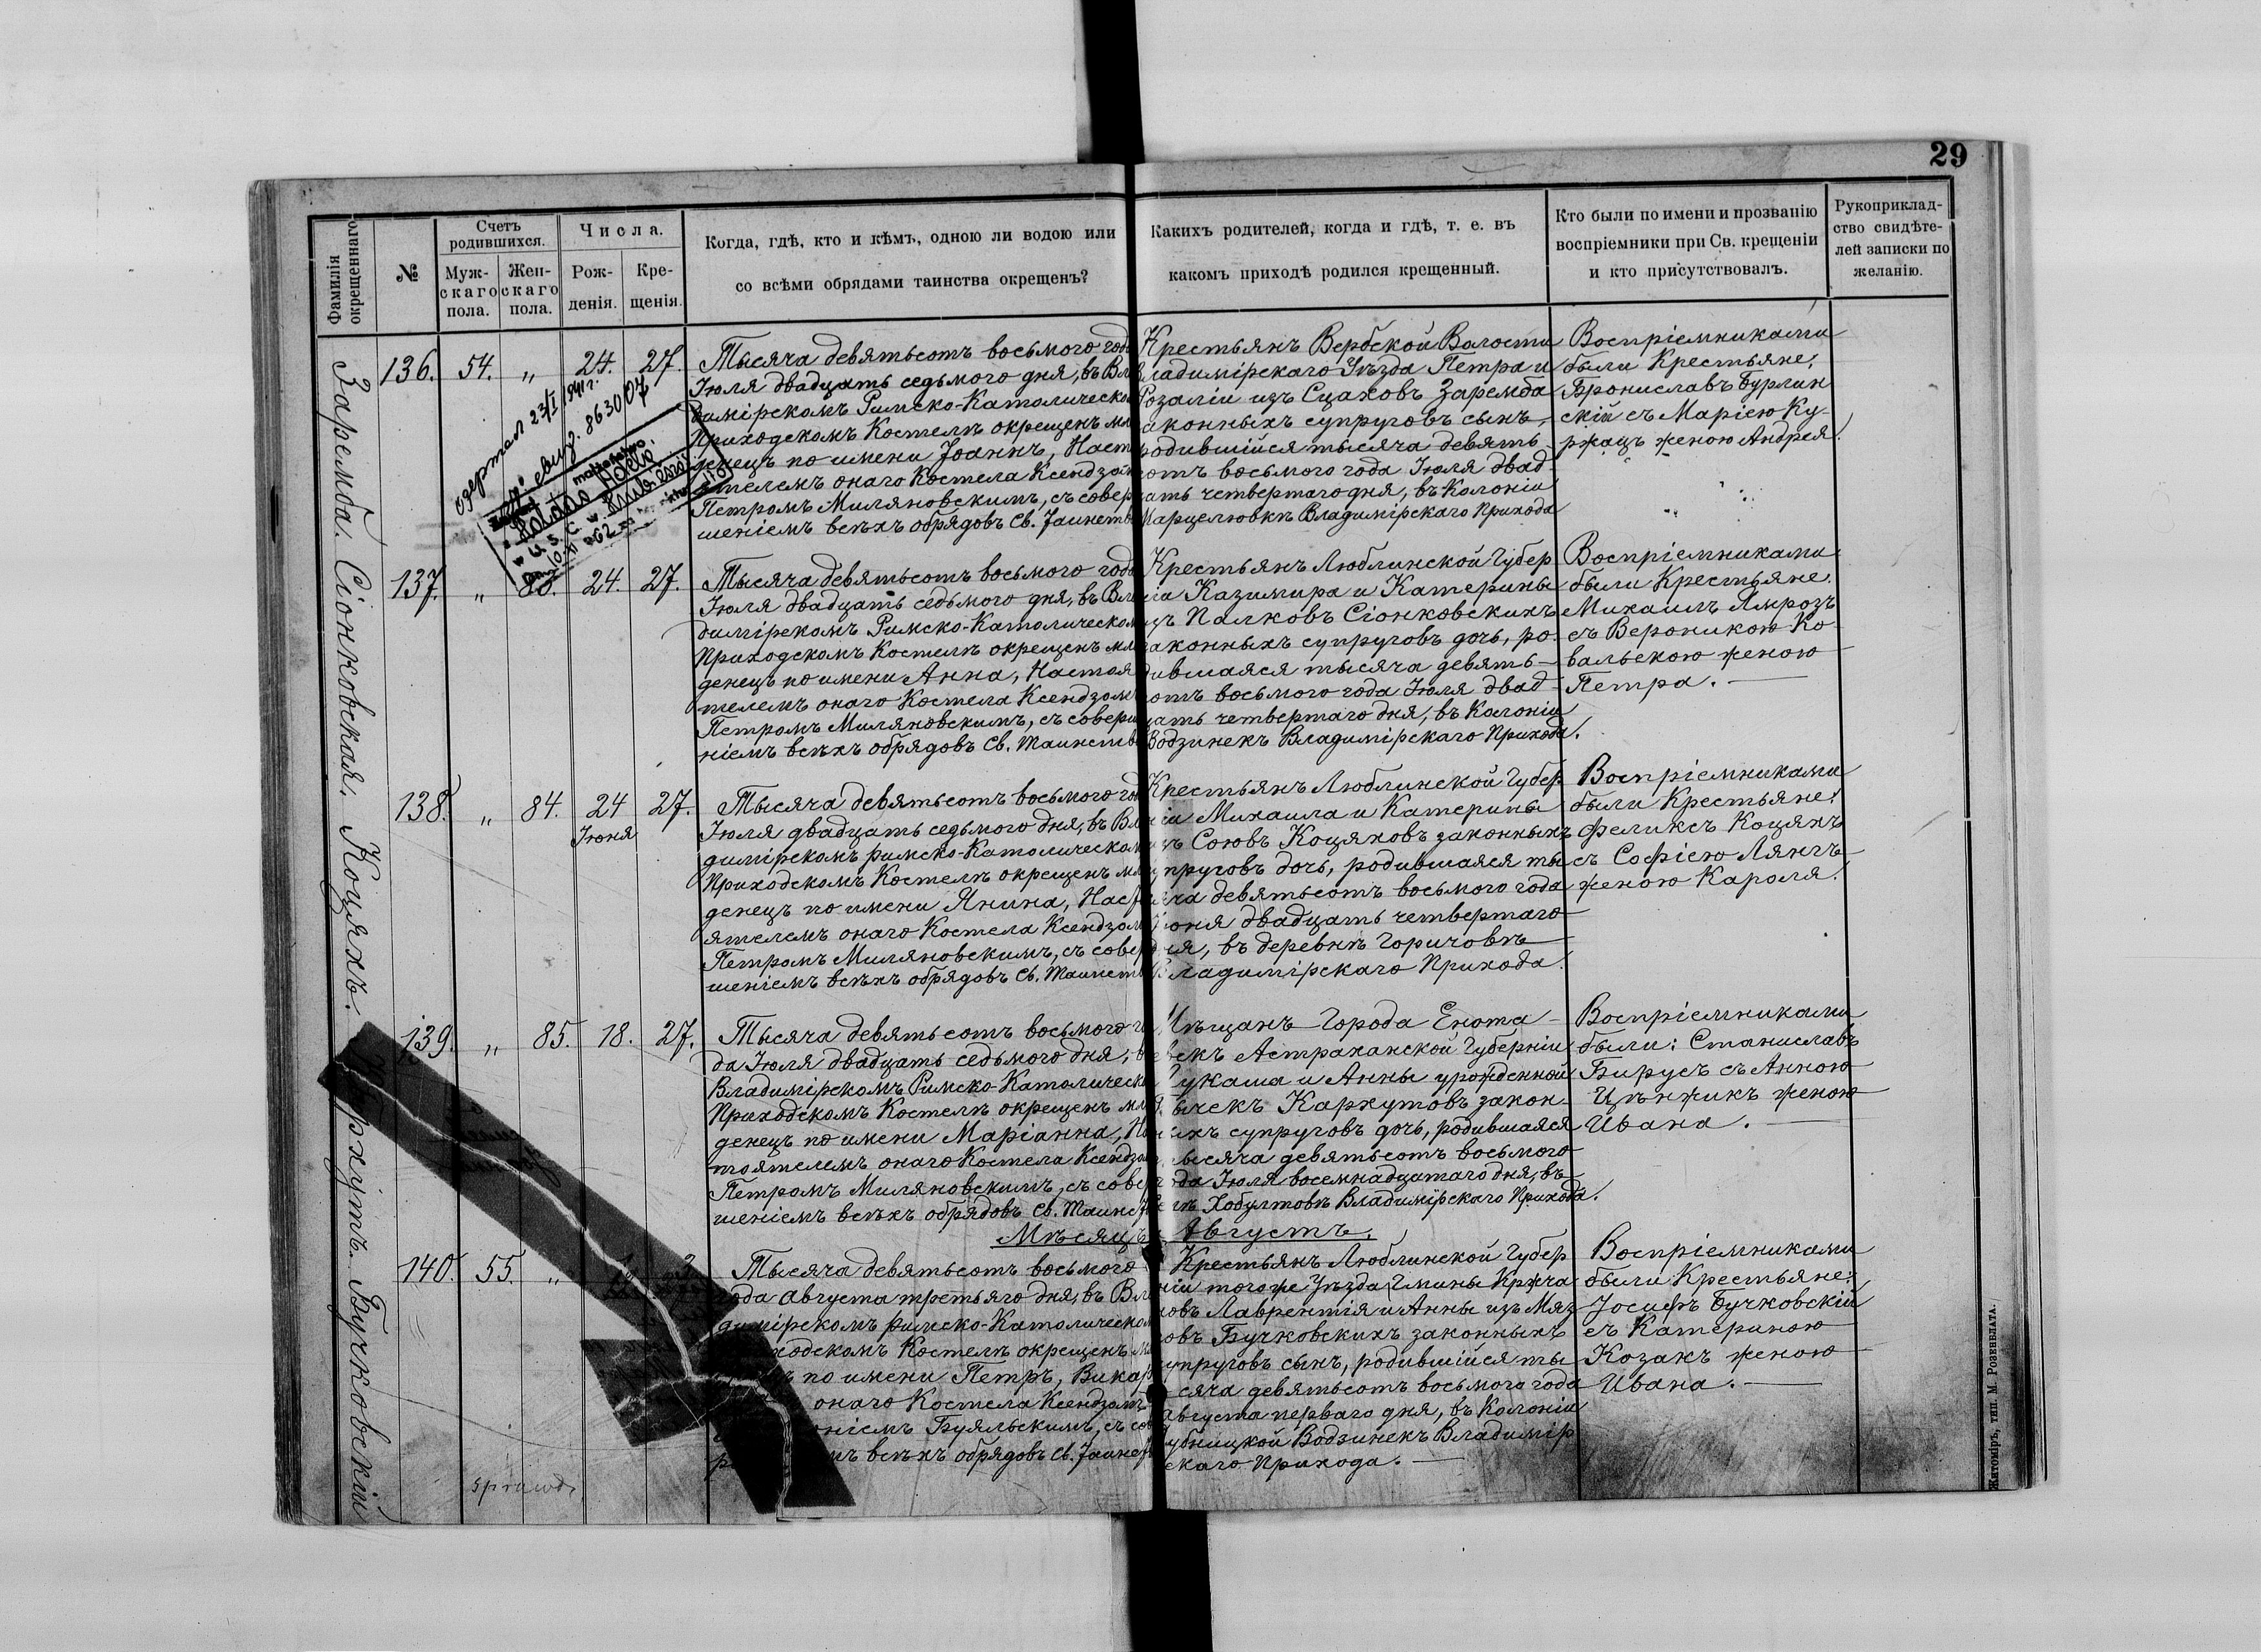 29
Фамилія окрещеннаго
№
Счетъ родившихся.
Муж-
скаго
пола.
Жен-
скаго
пола.
Числа.
Рож-
денія.
Кре-
щенія.
Когда, гдѣ, кто и кѣмъ, одною ли водою или
со всѣми обрядами таинства окрещенъ?
Какихъ родителей, когда и гдѣ, т. е. въ
какомъ приходѣ родился крещенный.
Кто были по имени и прозванію
воспріемники при Св. крещеніи
и кто присутствовалъ.
Рукоприклад-
ство свидѣте-
лей записки по
желанію.
Заремба.
136. 54. „ 24. 27.
одержал 23/I 1941 г.
863007
Тысяча девятьсотъ восьмого года
Іюля двадцать седьмого дня, въ Вла
димірскомъ Римско-Католическо
Приходскомъ Костелѣ окрещенъ мл
денецъ по имени Іоаннъ, Наст
ятелемъ онаго Костела Ксендзом
Петромъ Миляновскимъ, съ совер
шеніемъ всѣхъ обрядовъ Св. Таинств
Крестьянъ Вербской Волости
Владимірскаго Уѣзда Петра и
Розаліи изъ Сцаховъ Заремба
законныхъ супруговъ сынъ,
родившійся тысяча девять
сотъ восьмого года Іюля двад
цать четвертаго дня, въ Колоніи
Марцелювкѣ Владимірскаго Прихода
Воспріемниками
были Крестьяне:
Брониславъ Бурлин
скій съ Маріею Ку-
ржацъ женою Андрея.
Сіонковская.
137. „ 83. 24. 27.
Тысяча девятьсотъ восьмого года
Іюля двадцать седьмого дня, въ Вла
димірскомъ Римско-Католическом
Приходскомъ Костелѣ окрещенъ мла
денецъ по имени Анна, Настоя
телемъ онаго Костела Ксендзомъ
Петромъ Миляновскимъ, съ соверш
ніемъ всѣхъ обрядовъ Св. Таинств
Крестьянъ Люблинской Губер
ніи Казимира и Катерины
изъ Палковъ Сіонковскихъ
законныхъ супруговъ дочь, ро-
дившаяся тысяча девять-
сотъ восьмого года Іюля двад
цать четвертаго дня, въ Колоніи
Водзинекъ Владимірскаго Прихода.
Воспріемниками
были Крестьяне:
Михаилъ Ямрозъ
съ Вероникою Ко-
вальскою женою
Петра.
Коцяхъ.
138. „ 84. 24 Іюня 27.
Тысяча девятьсотъ восьмого год
Іюля двадцать седьмого дня, въ Вла
димірскомъ Римско-Католическом
Приходскомъ Костелѣ окрещенъ мл
денецъ по имени Янина, Наст
ятелемъ онаго Костела Ксендзом
Петромъ Миляновскимъ, съ совер
шеніемъ всѣхъ обрядовъ Св. Таинств
Крестьянъ Люблинской Губер
ніи Михаила и Катерины
изъ Соювъ Коцяховъ законныхъ
супруговъ дочь, родившаяся ты
сяча девятьсотъ восьмого года
Іюня двадцать четвертаго
дня, въ деревнѣ Горичовѣ
Владимірскаго Прихода.
Воспріемниками
были Крестьяне:
Феликсъ Коцяхъ
съ Софіею Лянгъ
женою Кароля.
139. „ 85. 18. 27.
Тысяча девятьсотъ восьмого го
да Іюля двадцать седьмого дня, въ
Владимірскомъ Римско-Католическо
Приходскомъ Костелѣ окрещенъ мла
денецъ по имени Маріанна, На
тоятелемъ онаго Костела Ксендзо
Петромъ Миляновскимъ, съ совер
шеніемъ всѣхъ обрядовъ Св. Таинст
Мѣщанъ Города Енота
евскъ Астраханской Губерніи
Лукаша и Анны урожденной
Каркутовъ закон-
ныхъ супруговъ дочь, родившаяся
тысяча девятьсотъ восьмого
года Іюля восемнадцатаго дня, въ
селѣ Хобултовѣ Владимірскаго Прихода.
Воспріемниками
были: Станиславъ
Бирусъ съ Анною
Цѣнжикъ женою
Ивана.
Мѣсяцъ Августъ.
Бучковскій
140. 55. „
Тысяча девятьсотъ восьмого
года Августа третьяго дня, въ Вла
димірскомъ Римско-Католическом
ходскомъ Костелѣ окрещенъ м
по имени Петръ, Викар
онаго Костела Ксендзомъ
ніемъ Буяльскимъ, съ сов
всѣхъ обрядовъ Св. Таинст
Крестьянъ Люблинской Губер
ніи того же Уѣзда Гмины Кржча
новъ Лаврентія и Анны изъ Мяз
овъ Бучковскихъ законныхъ
супруговъ сынъ, родившійся ты
сяча девятьсотъ восьмого года
Августа перваго дня, въ Колоніи
Дубницкой Водзинекъ Владимір
скаго Прихода.
Воспріемниками
были Крестьяне:
Іосифъ Бучковскій
съ Катериною
Козакъ женою
Ивана.
Житоміръ, тип. М. Розенблата.